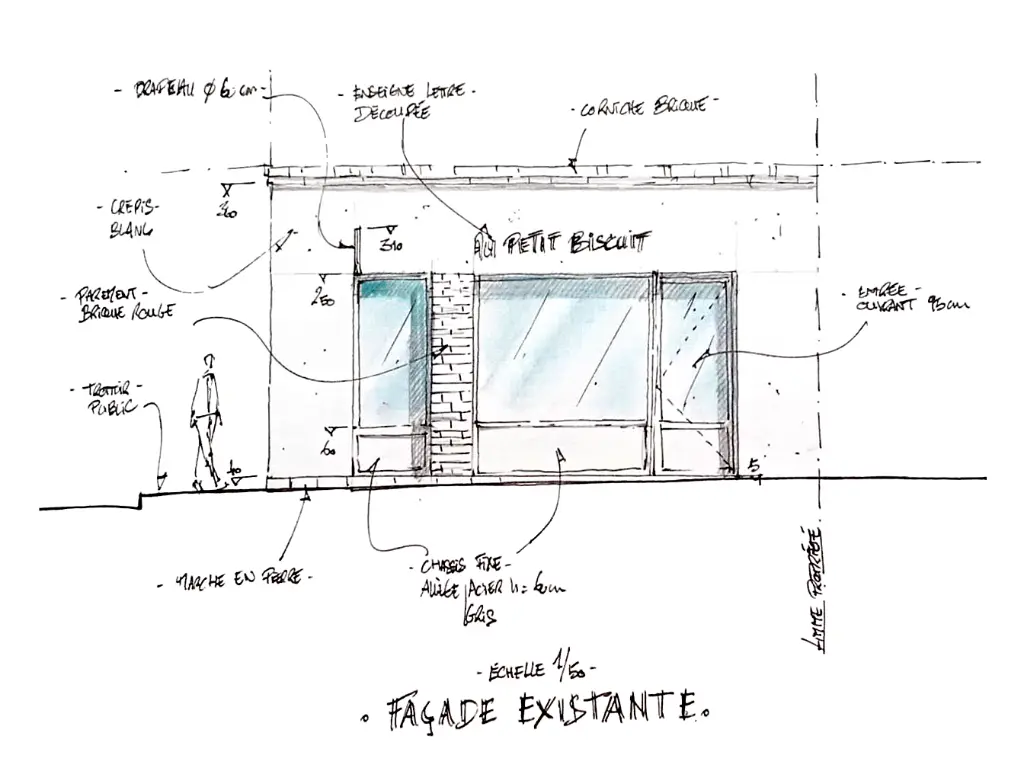 - DRAPEAU Ø 60 cm -
- ENSEIGNE LETTRE -
DÉCOUPÉE
- CORNICHE BRIQUE -
- CREPIS -
BLANC
360
310
AU PETIT BISCUIT
250
- PAREMENT -
BRIQUE ROUGE
- ENTRÉE -
OUVRANT 95 cm
- TROTTOIR -
PUBLIC
60
10
5
- MARCHE EN PIERRE -
- CHASSIS FIXE -
ALLÈGE ACIER h = 60 cm
GRIS
LIMITE PROPRIÉTÉ
- ÉCHELLE 1/50 -
. FAÇADE EXISTANTE .